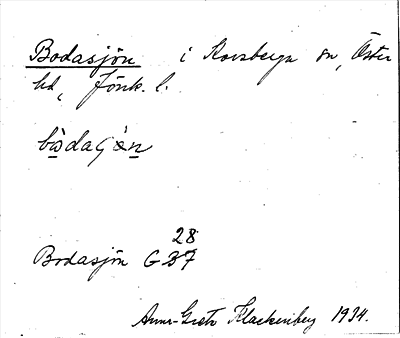 Bodasjön i Korsberga sn, Öster
hd, Jönk. l.
bòdaʃὼn
28
Bodasjön G 37
Anna-Greta Flackenberg 1934.